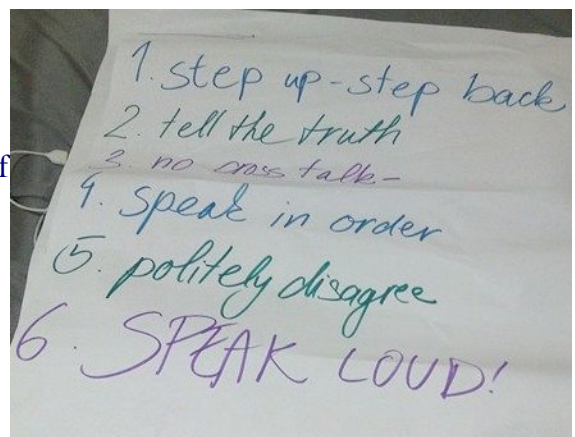 1. step up - step back
2. tell the truth
3. no cross talk -
4. speak in order
5. politely disagree
6. SPEAK LOUD!